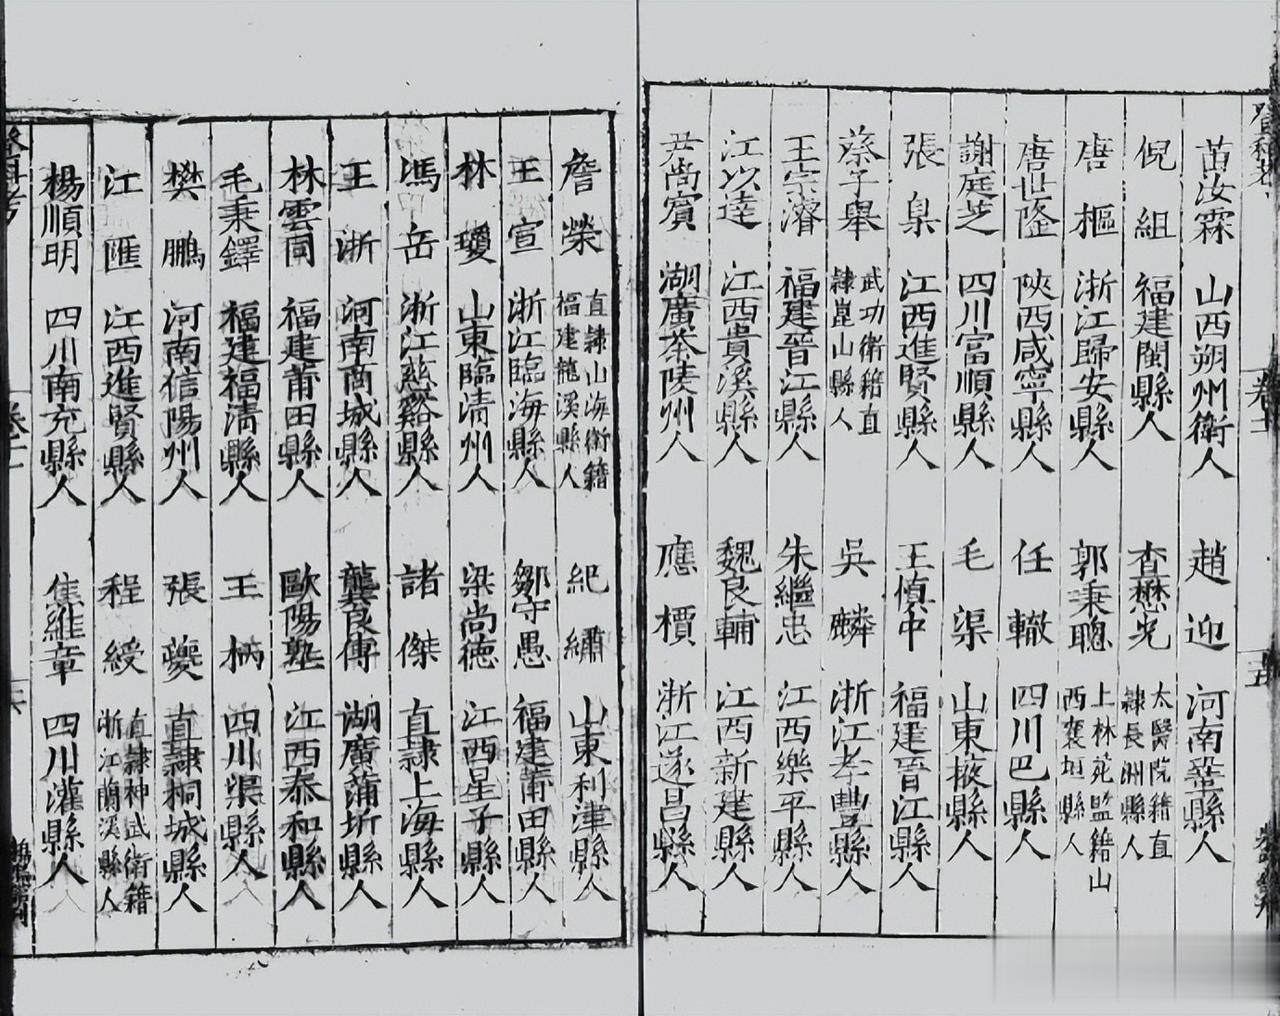 苗汝霖 山西朔州衛人 趙迎 河南鞏縣人
倪組 福建閩縣人 查懋光 太醫院籍直隸長洲縣人
唐樞 浙江歸安縣人 郭秉聰 上林苑監籍山西襄垣縣人
唐世隆 陝西咸寧縣人 任轍 四川巴縣人
謝庭芝 四川富順縣人 毛渠 山東掖縣人
張臬 江西進賢縣人 王慎中 福建晉江縣人
蔡子舉 武功衛籍直隸崑山縣人 吳麟 浙江孝豐縣人
王宗濬 福建晉江縣人 朱繼忠 江西樂平縣人
江以達 江西貴溪縣人 魏良輔 江西新建縣人
尹尚賓 湖廣茶陵州人 應檟 浙江遂昌縣人
詹榮 直隸山海衛籍福建龍溪縣人 紀繡 山東利津縣人
王宣 浙江臨海縣人 鄒守愚 福建莆田縣人
林瓊 山東臨清州人 梁尚德 江西星子縣人
馮岳 浙江慈谿縣人 諸傑 直隸上海縣人
王浙 河南商城縣人 龔良傅 湖廣蒲圻縣人
林雲同 福建莆田縣人 歐陽塾 江西泰和縣人
毛秉鐸 福建福清縣人 王柄 四川渠縣人
樊鵬 河南信陽州人 張夔 直隸桐城縣人
江匯 江西進賢縣人 程綬 直隸神武衛籍浙江蘭溪縣人
楊順明 四川南充縣人 焦維章 四川灌縣人
登科考 卷十一 六